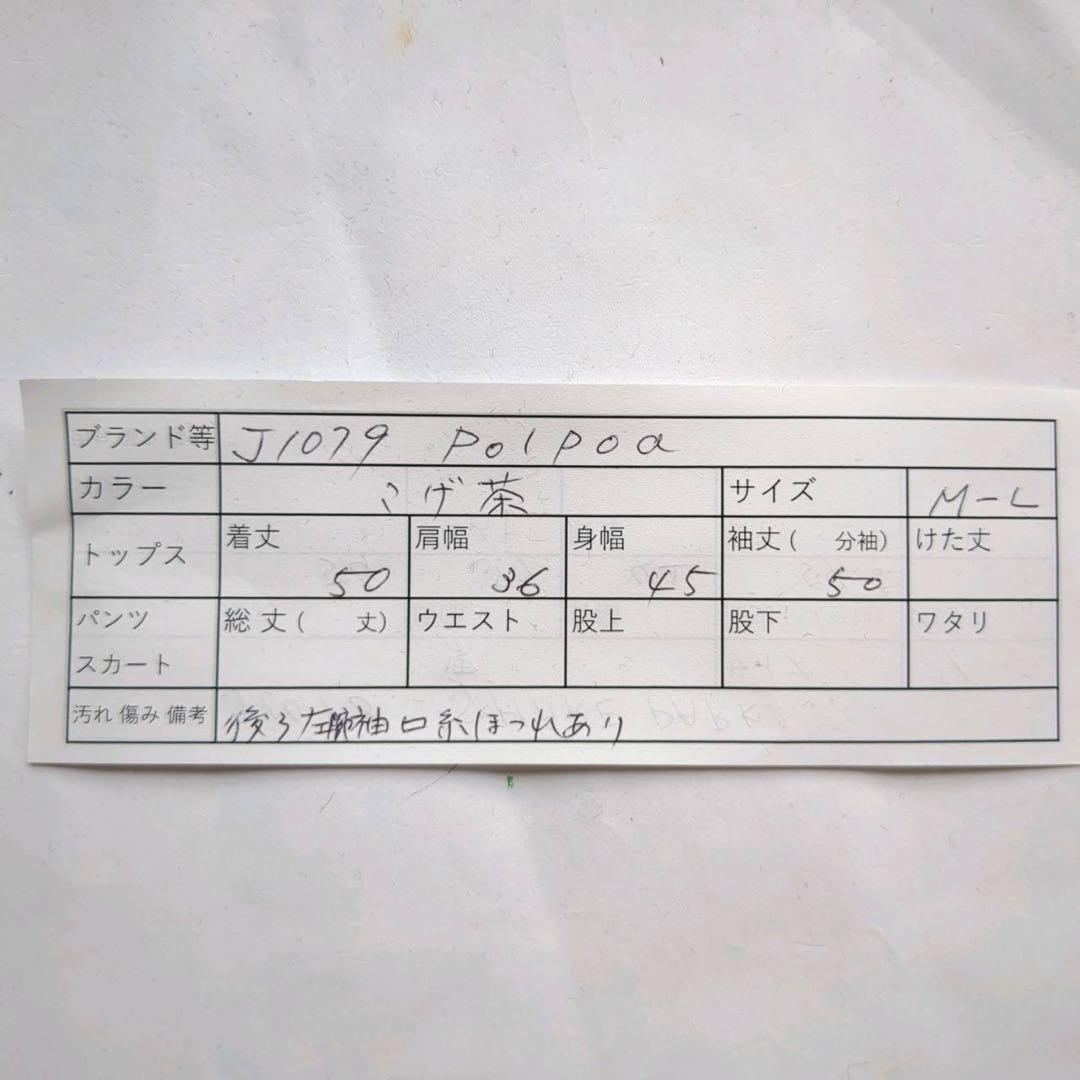 ブランド等 J1079 polpoa
カラー こげ茶 サイズ M-L
トップス 着丈 50 肩幅 36 身幅 45 袖丈( 分袖) 50 けた丈
パンツ スカート 総丈( 丈) ウエスト 股上 股下 ワタリ
汚れ 傷み 備考 後ろ左袖口糸ほつれあり